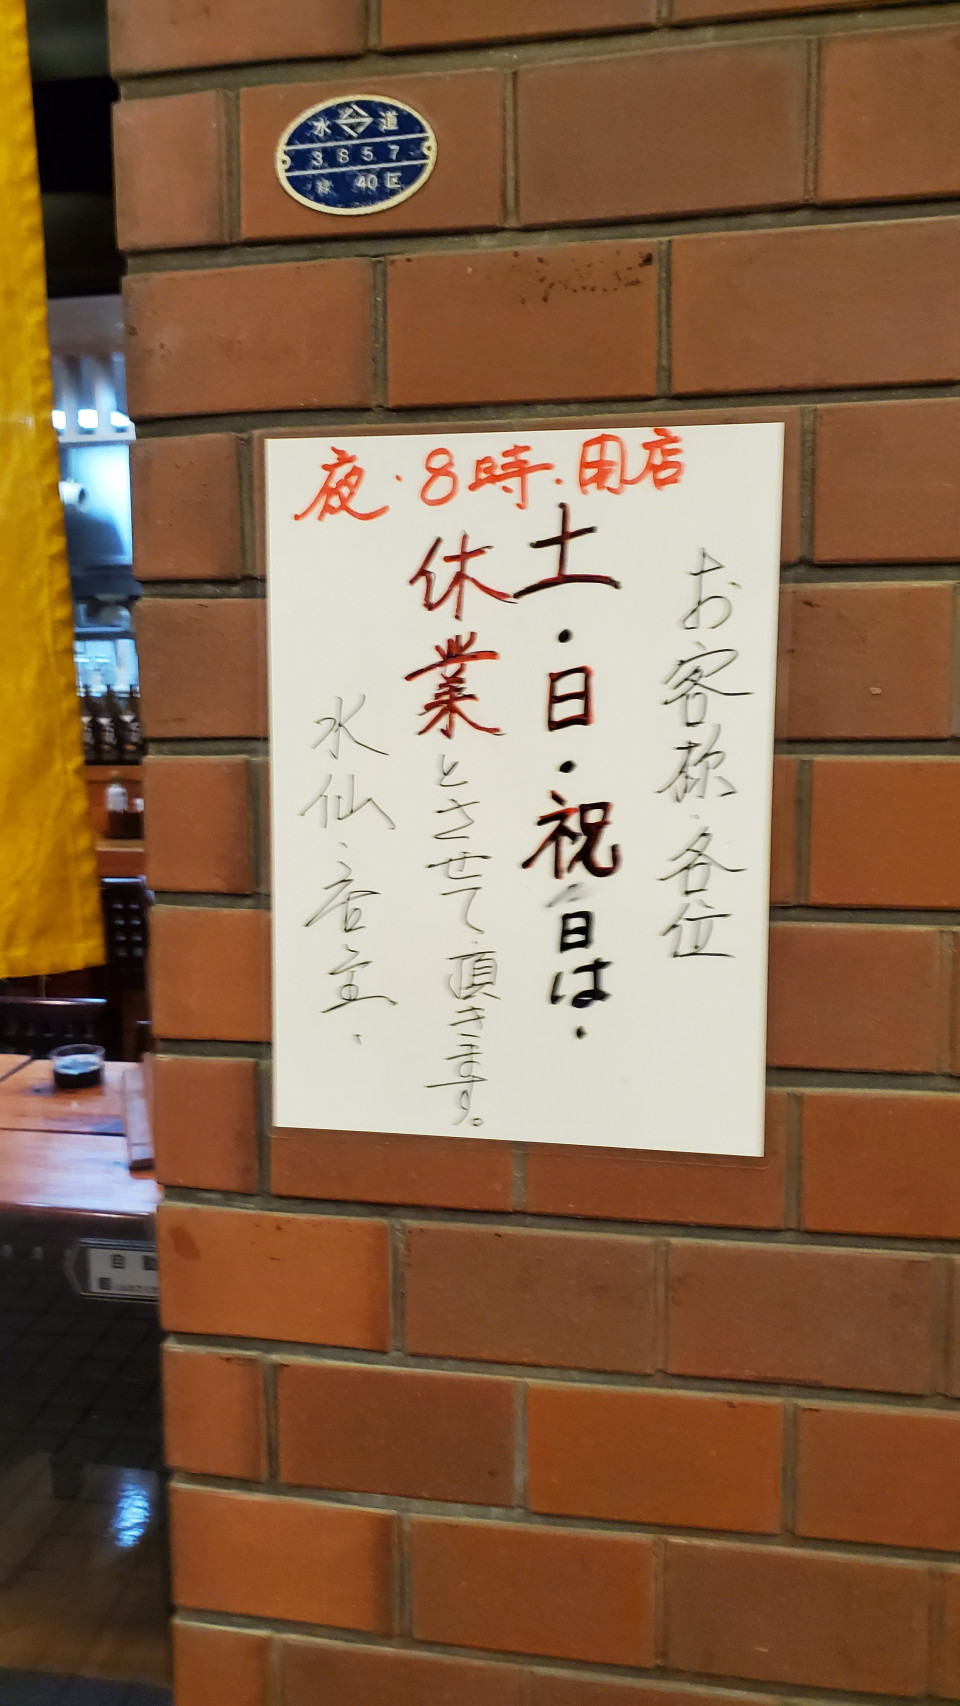 水道
3 8 5 7
40 区
夜・8時・閉店
お客様各位
土・日・祝日は・
休業とさせて頂きます。
水仙・店主・
自